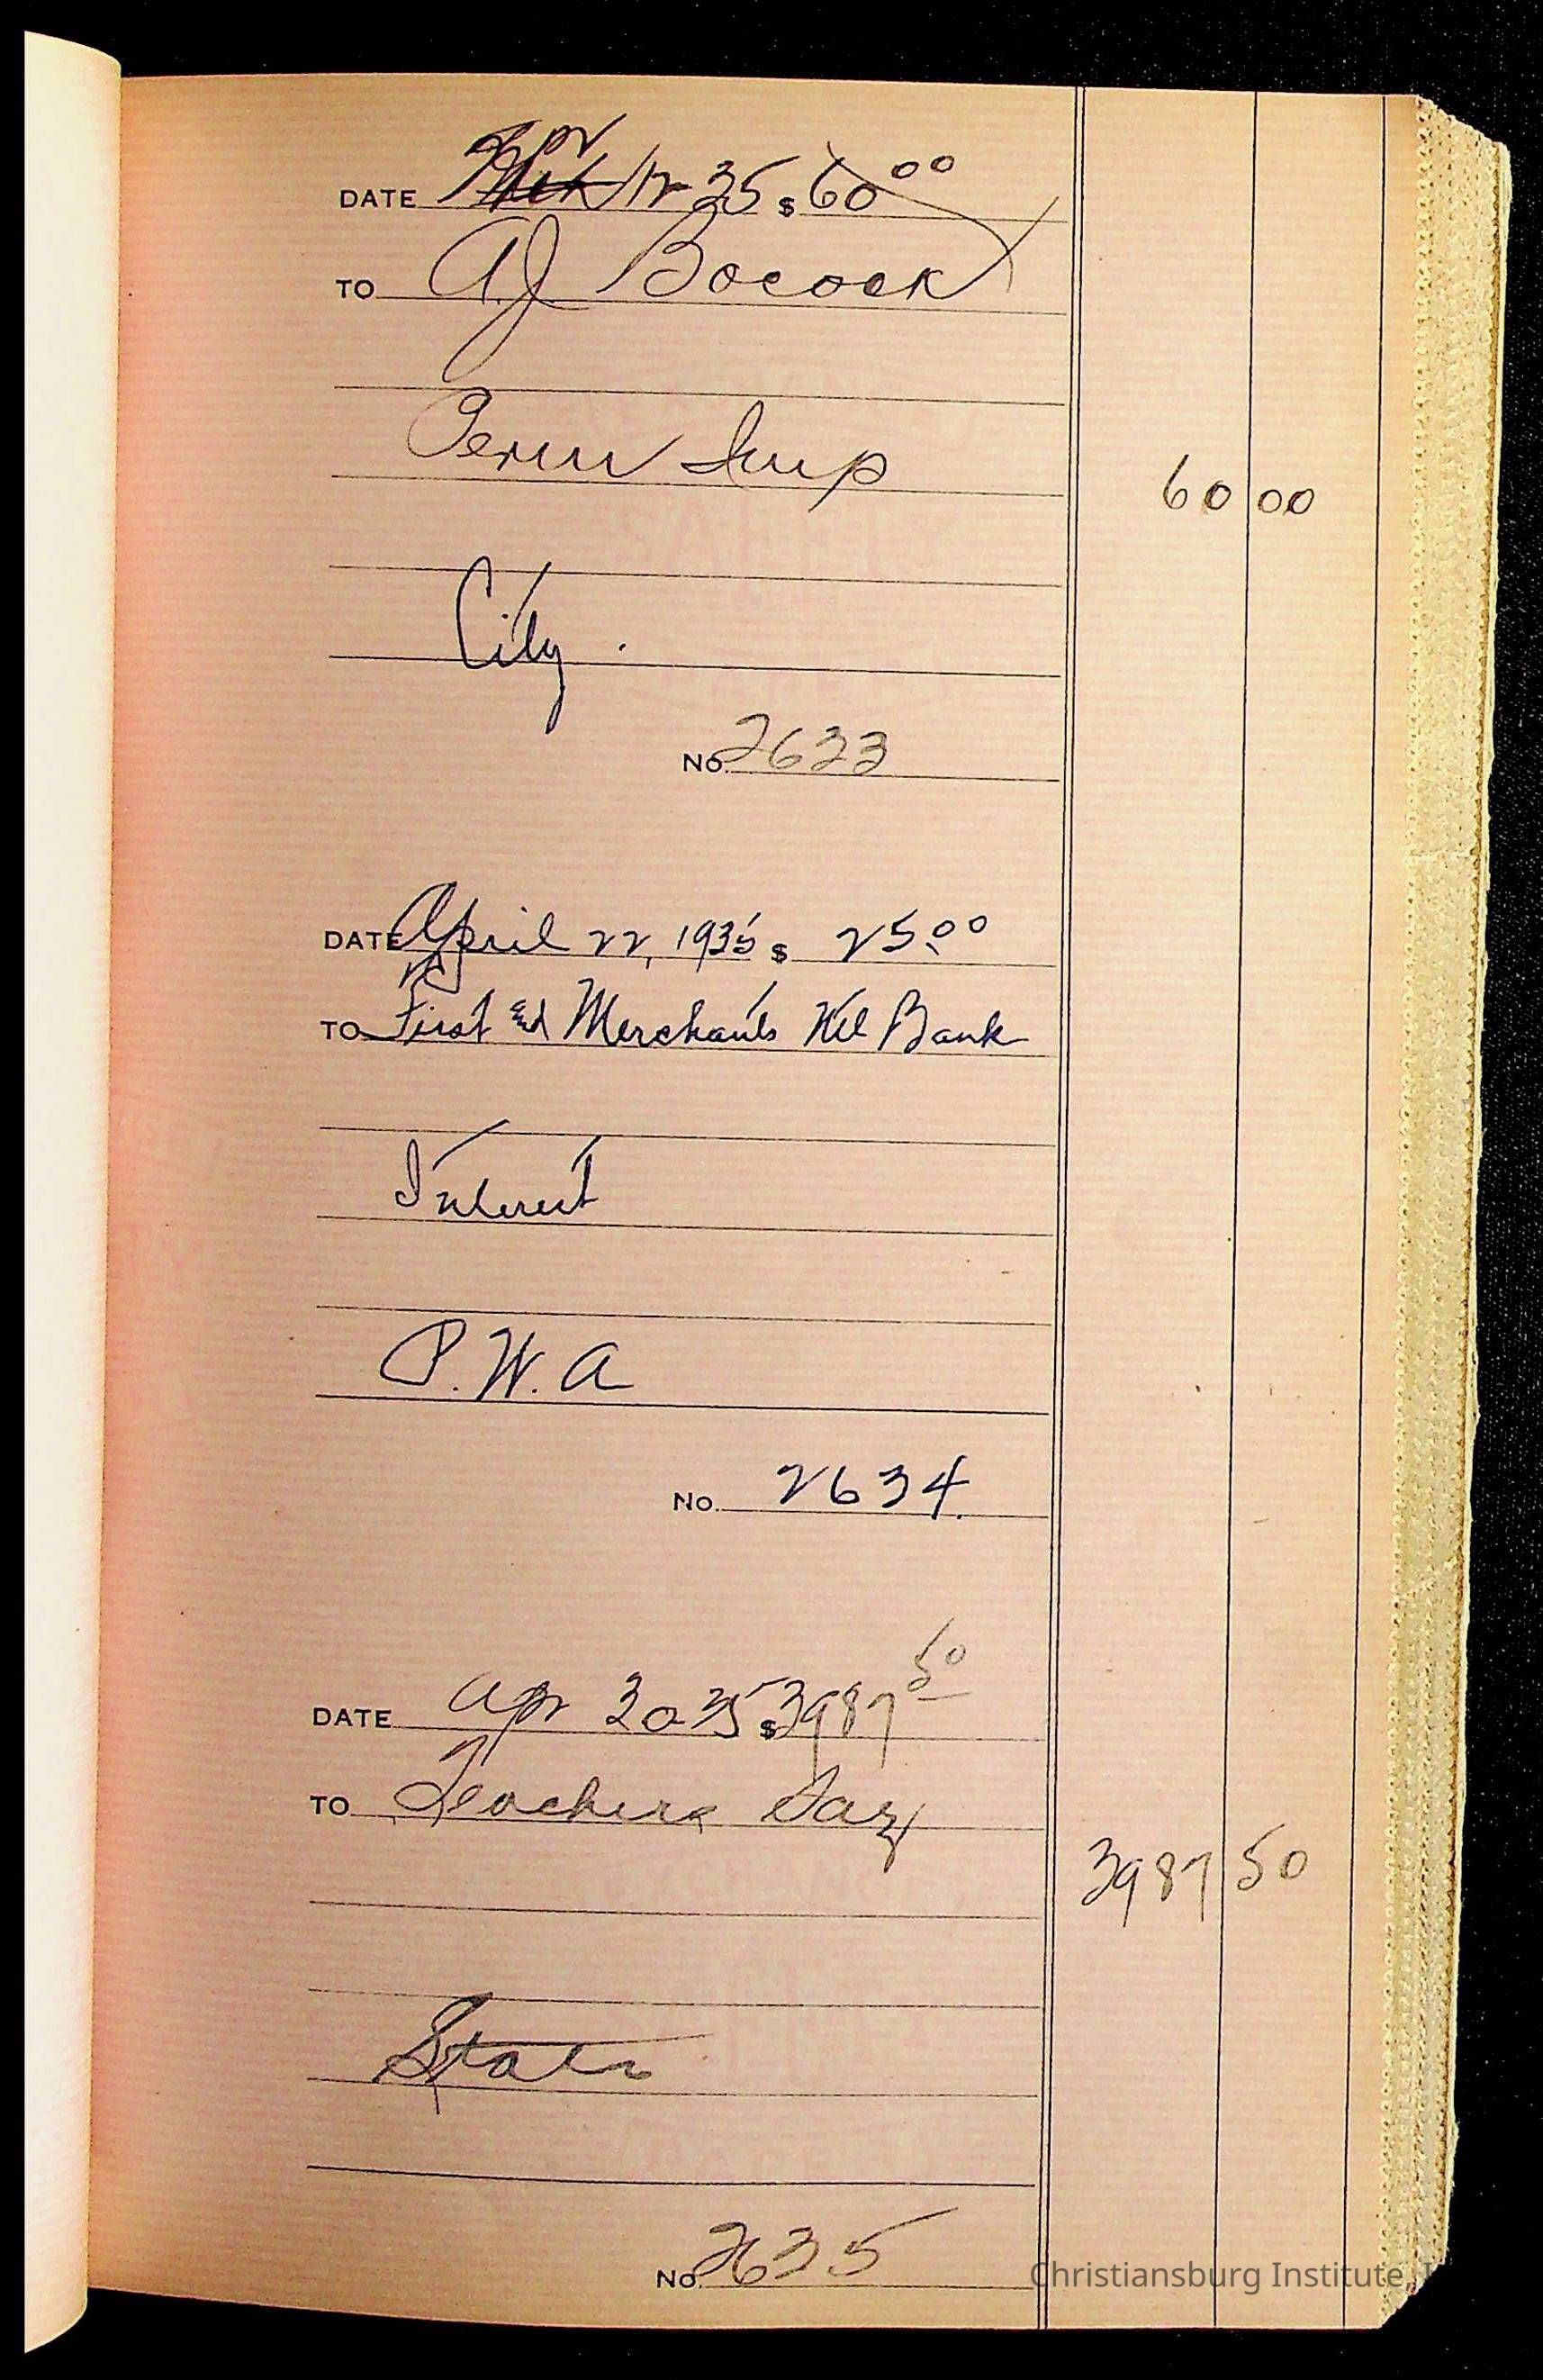 DATE Apr 12 35 $ 60 00
TO A J Bocock
Perm Imp
60 00
City.
No. 2633
DATE April 22, 1935 $ 25.00
TO First and Merchants Ntl Bank
Interest
P. W. A
No. 2634.
DATE Apr 30 35 $ 3987 50
TO Teachers
3987 50
State
No. 2635
Christiansburg Institute, I